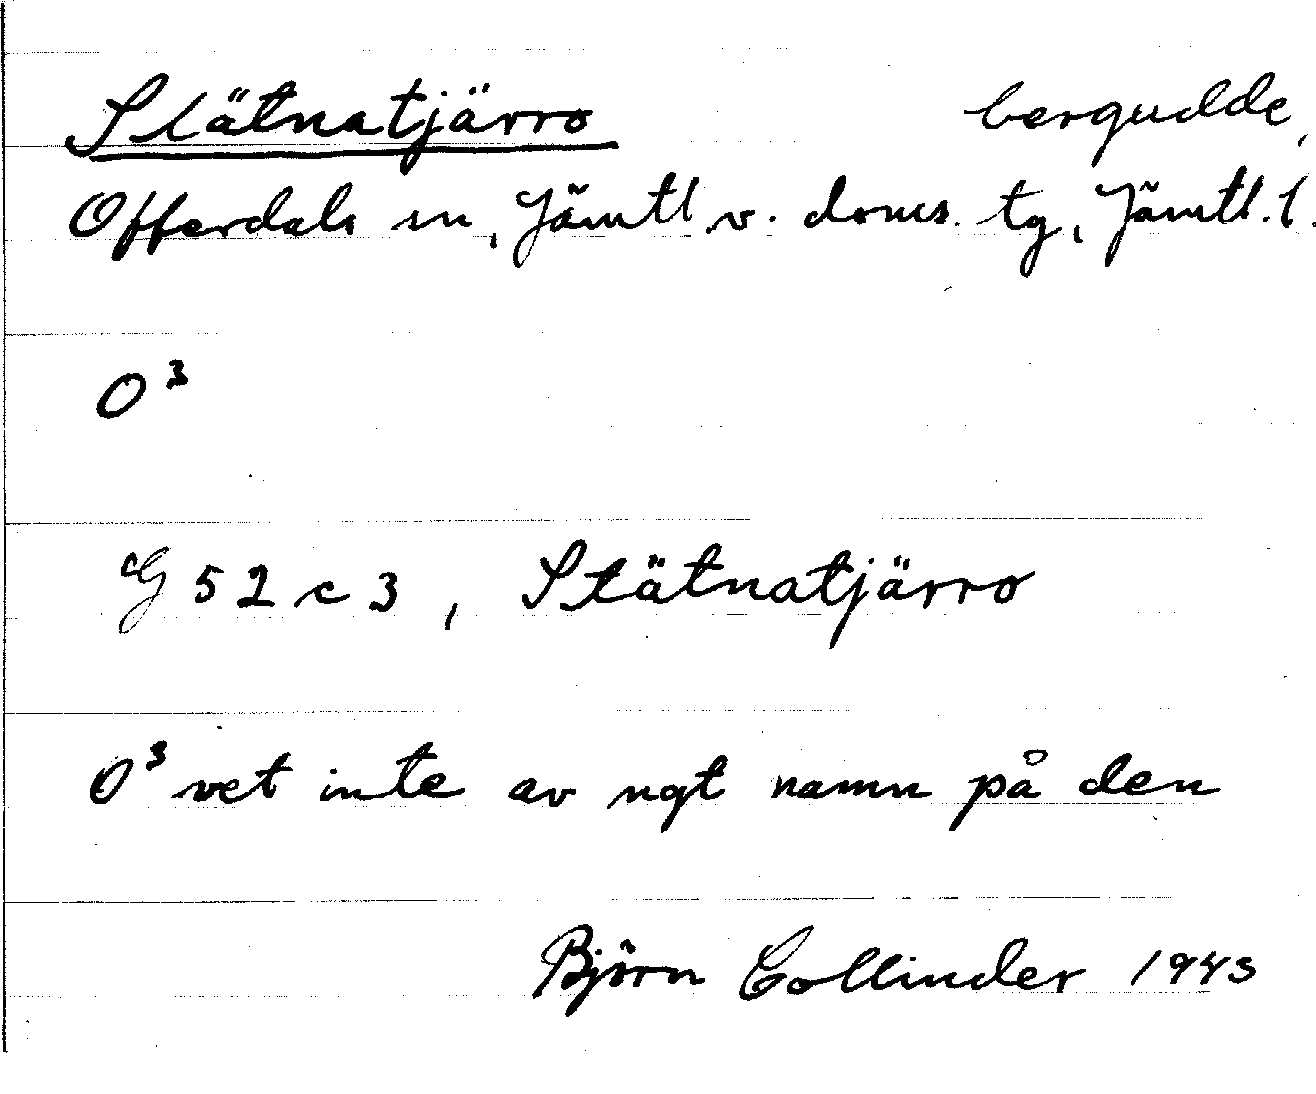 Slätnatjärro bergudde,
Offerdals sn, Jämtl. v. doms. tg, Jämtl. l.
O³
G 52 c 3, Stätnatjärro
O³ vet inte av ngt namn på den
Björn Collinder 1943